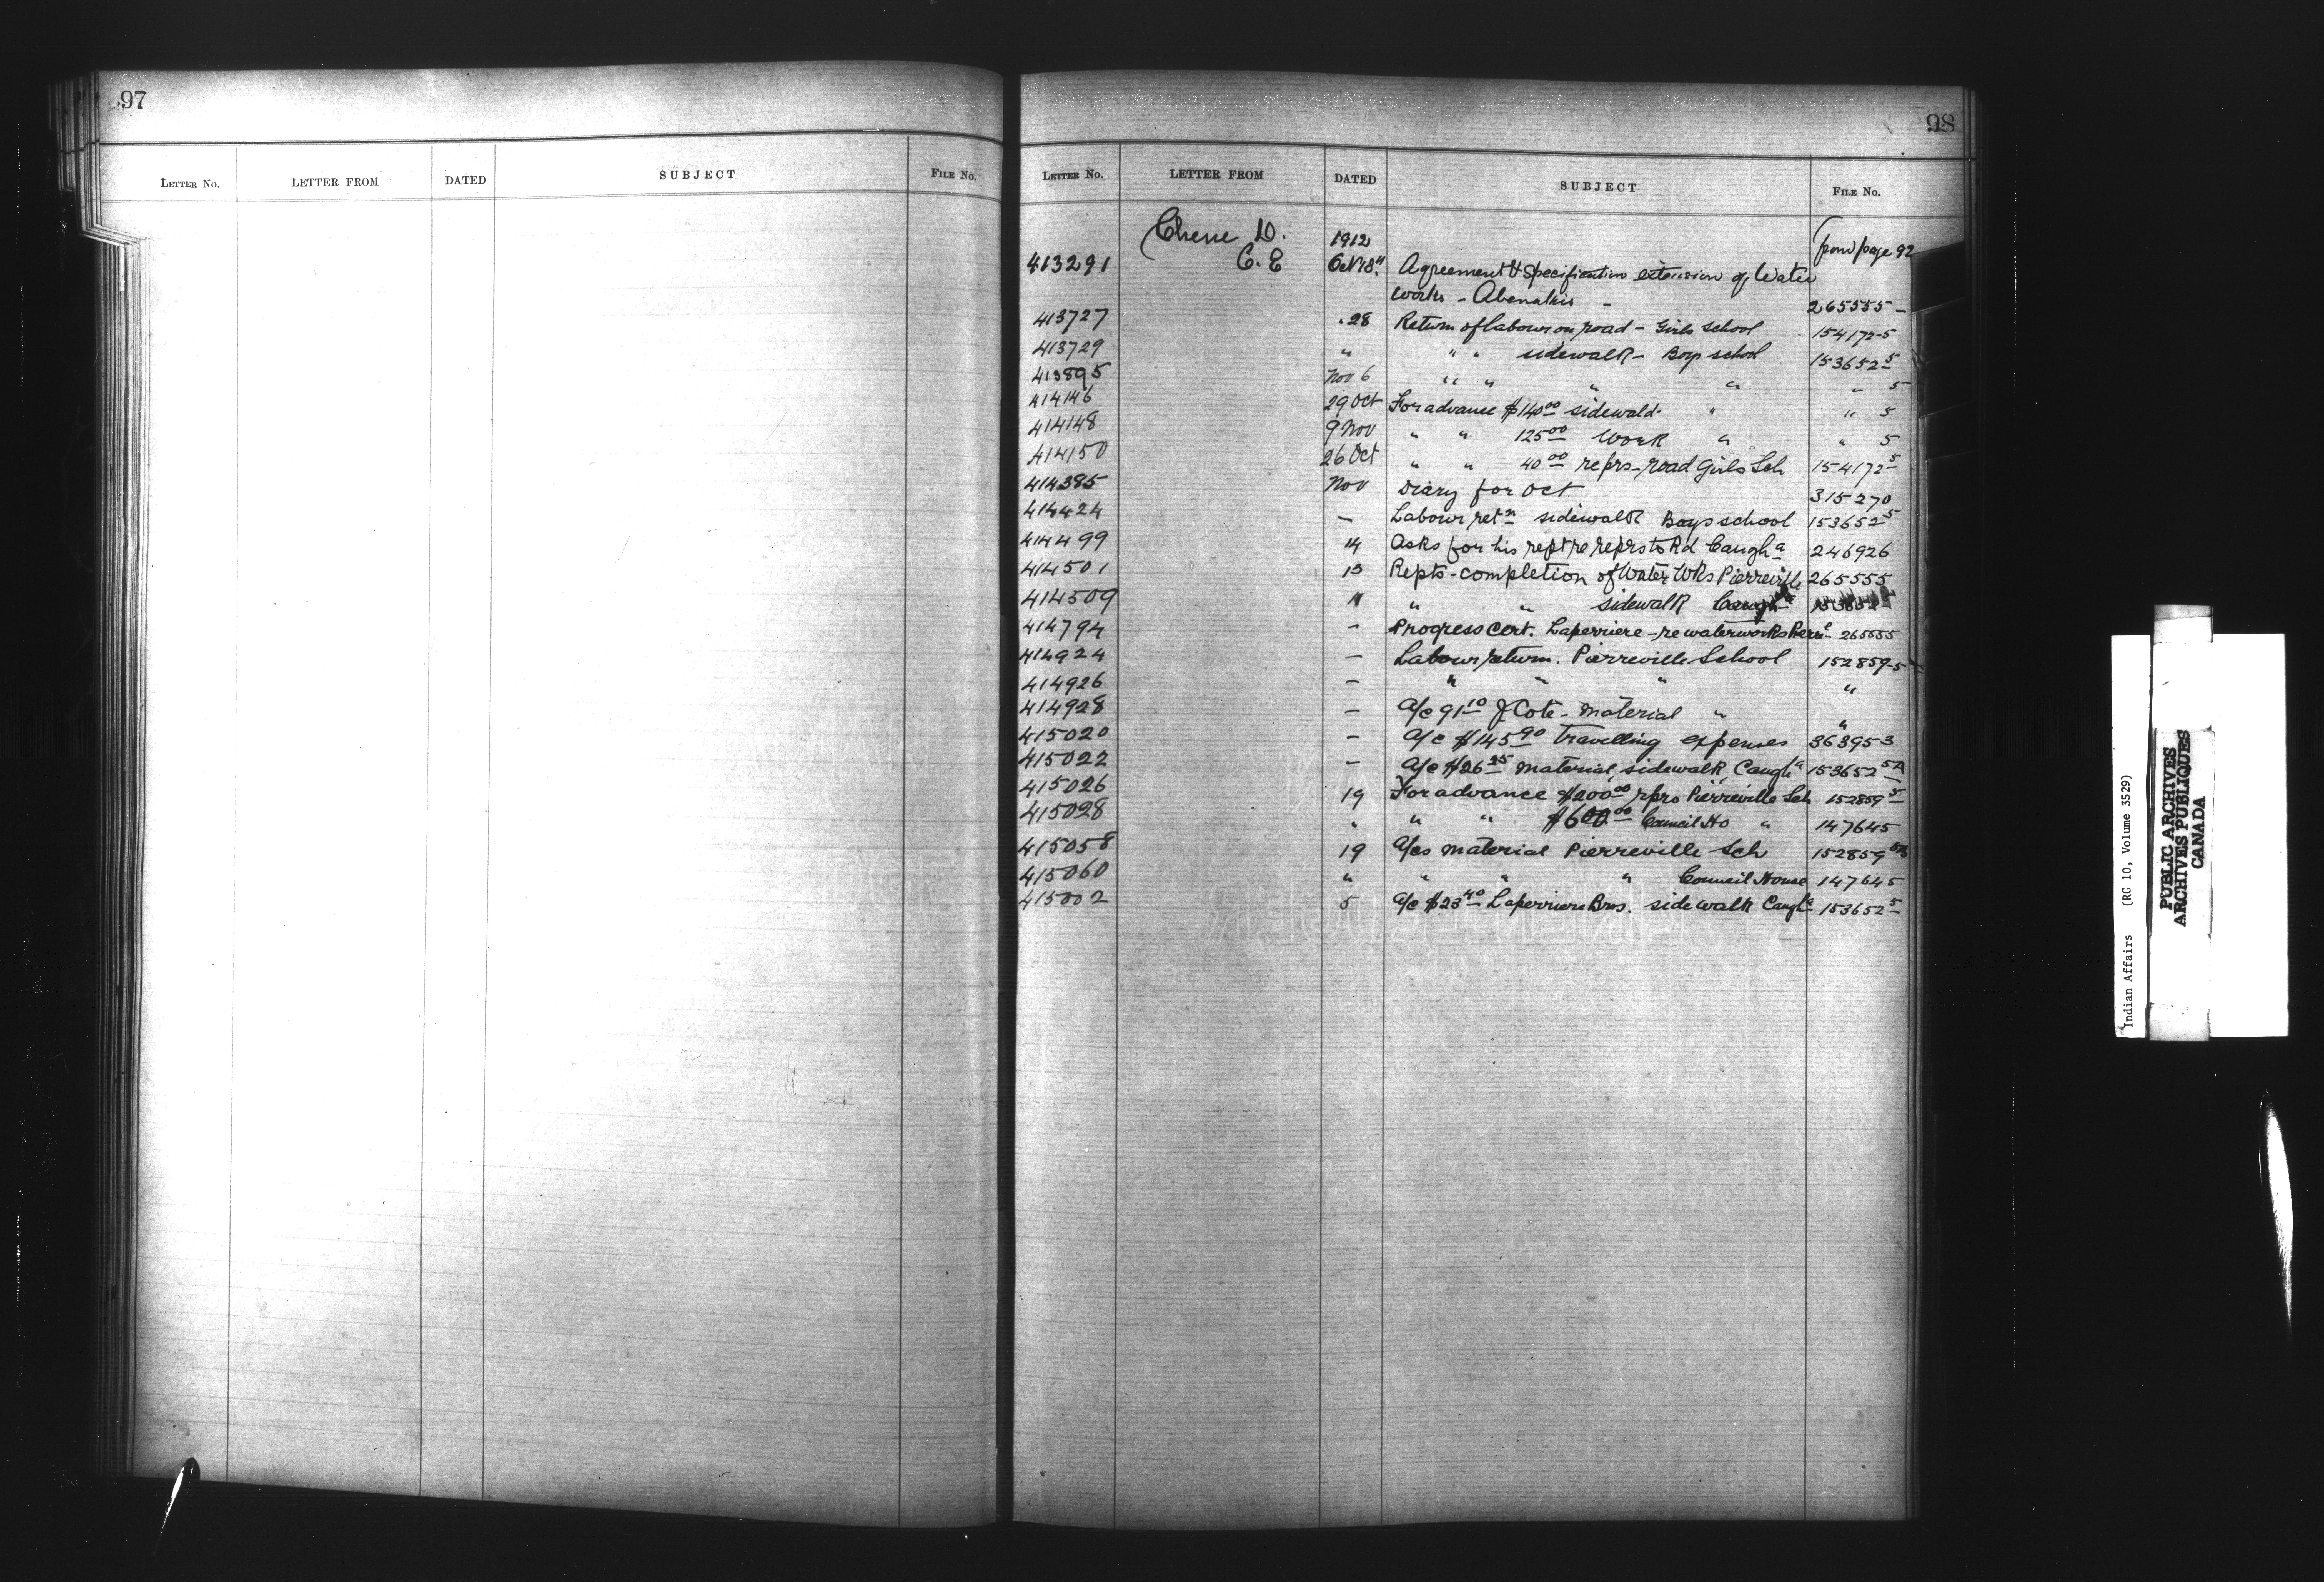 97
LETTER NO. LETTER FROM DATED SUBJECT FILE NO.
98
LETTER NO. LETTER FROM DATED SUBJECT FILE NO.
Chene D. 1912 from page 92
413291 C. E Oct 18 Agreement & Specification extension of Water
works - Abenakis - 265555 -
413727 28 Return of labour on road - Girls school 154172-5
413729 " " " sidewalk - Boys school 153652 5
413895 Nov 6 " " " " " 5
414146 29 Oct For advance $140 00 sidewalk " " 5
414148 9 Nov " " 125 00 Work " " 5
414150 26 Oct " " 40 00 reprs - road Girls Sch 154172 5
414385 Nov Diary for Oct 315270
414424 - Labour retn sidewalk Boys school 153652 5
414499 14 Asks for his rept re reprs to Rd Caugha 246926
414501 13 Repts - completion of Water Wks Pierreville 265555
414509 " " " sidewalk
414794 - Progress Cert. Laperriere - re waterworks Pierre 265555
414924 - Labour return. Pierreville School 152859-5
414926 - " " " "
414928 - a/c 91 10 J Cote - material " "
415020 - a/c $145 90 travelling expenses 363953
415022 - a/c $26 25 material, sidewalk, Caugha 153652 5A
415026 19 For advance $200 00 rprs Pierreville Sch 152859 5
415028 " " " $600 00 Council Ho " 147645
415058 19 a/cs material Pierreville Sch 152859
415060 " " " " Council House 147645
415002 5 a/c $23 40 Laperriere Bros. sidewalk Caugha 153652 5
Indian Affairs (RG 10, Volume 3529)
PUBLIC ARCHIVES
ARCHIVES PUBLIQUES
CANADA